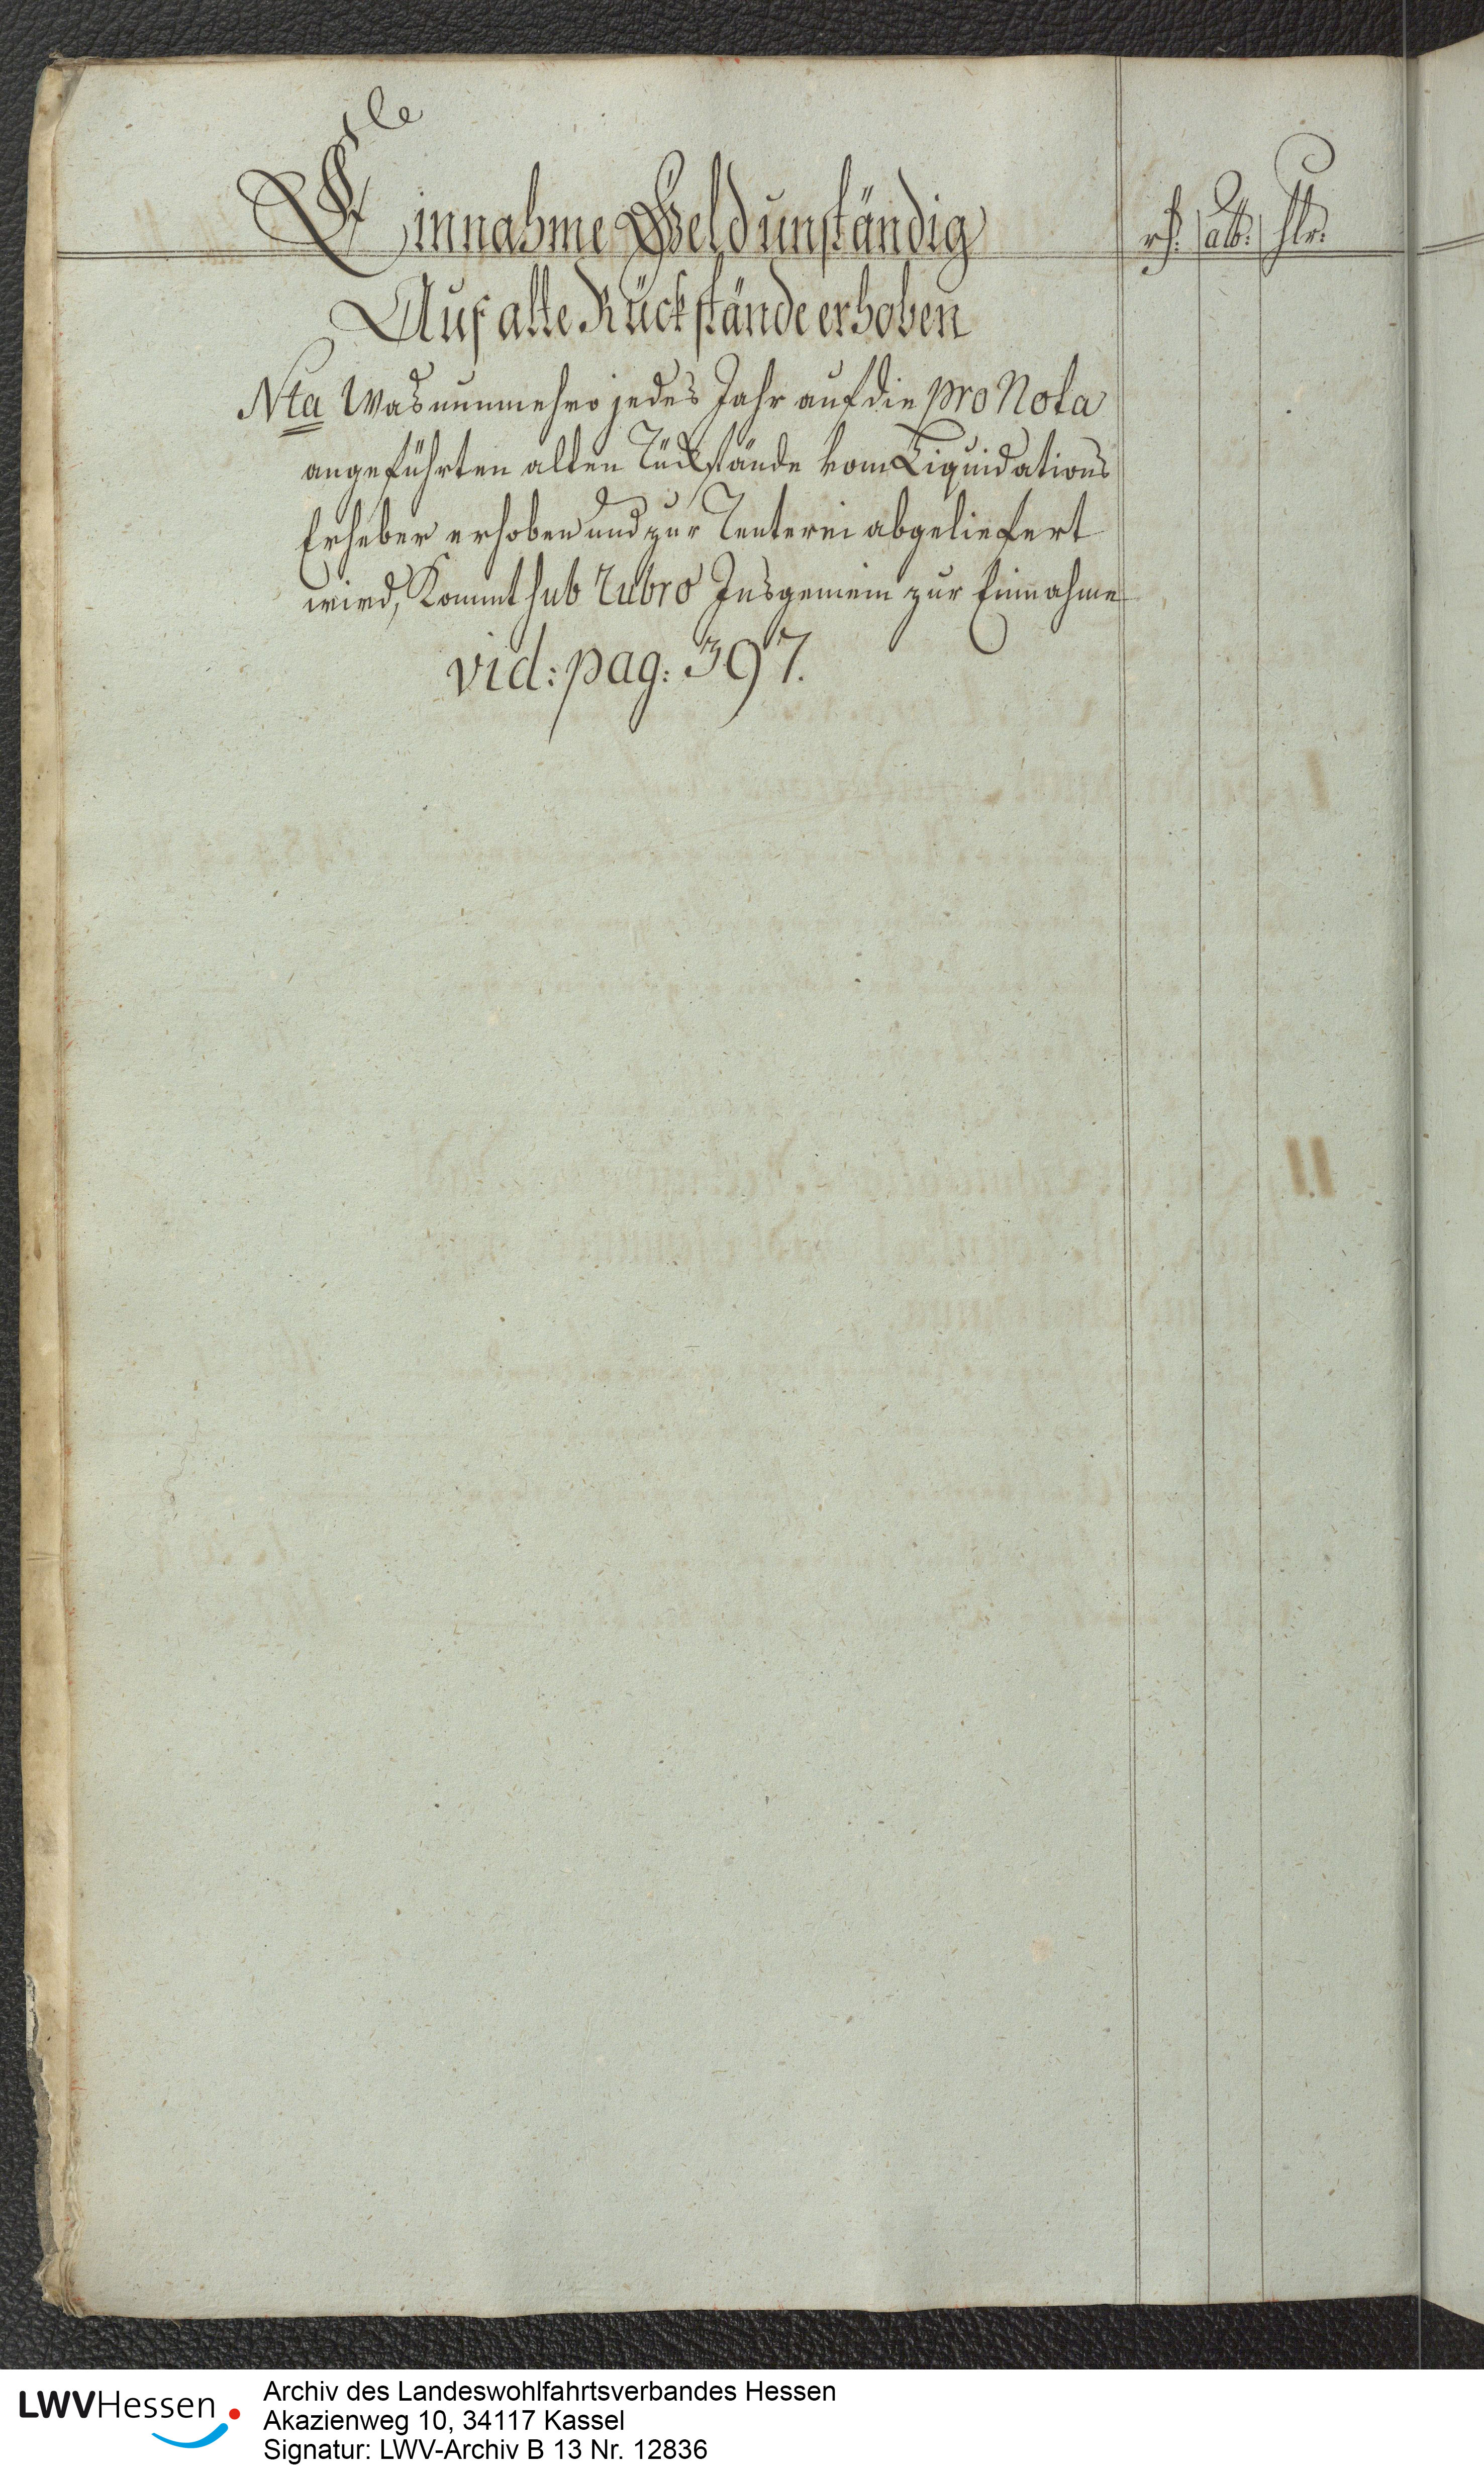 Einnahme Geld unständig
rh: alb: hlr:
Auf alte Rückstände erhoben
Nta Was nunmehro jedes Jahr auf die pro Nota
angeführten alten Rückstände vom Liquidations
Erheber erhoben und zur Renterei abgeliefert
wird, kommt sub Rubro Insgemein zur Einnahme
vid: pag: 397.
LWVHessen
Archiv des Landeswohlfahrtsverbandes Hessen
Akazienweg 10, 34117 Kassel
Signatur: LWV-Archiv B 13 Nr. 12836